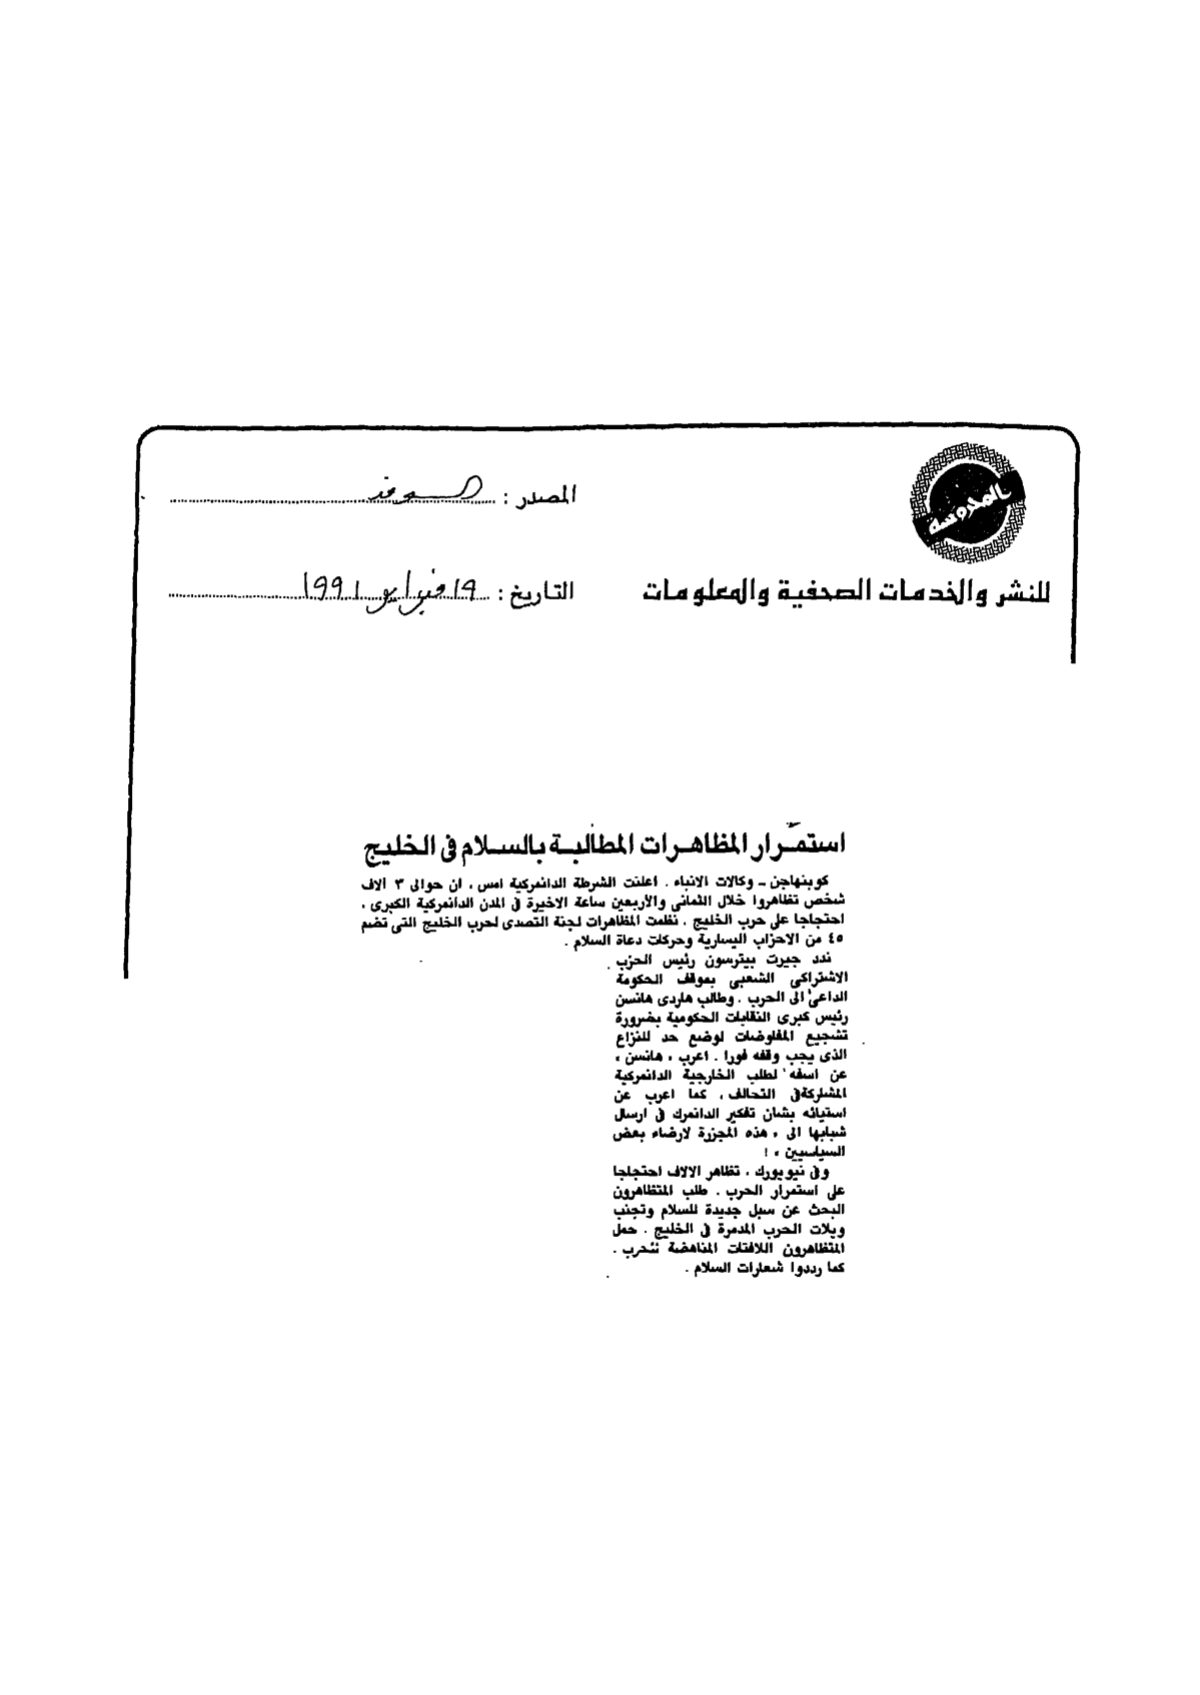 المحروسة
للنشر والخدمات الصحفية والمعلومات
المصدر : الوفد
التاريخ : ١٩ فبراير ١٩٩١
استمرار المظاهرات المطالبة بالسلام فى الخليج
كوبنهاجن - وكالات الانباء . اعلنت الشرطة الدانمركية امس ، ان حوالى ٣ الاف
شخص تظاهروا خلال الثمانى والأربعين ساعة الاخيرة فى المدن الدانمركية الكبرى ،
احتجاجا على حرب الخليج . نظمت المظاهرات لجنة التصدى لحرب الخليج التى تضم
٤٥ من الاحزاب اليسارية وحركات دعاة السلام .
ندد جيرت بيترسون رئيس الحزب
الاشتراكى الشعبى بموقف الحكومة
الداعى الى الحرب . وطالب هاردى هانسن
رئيس كبرى النقابات الحكومية بضرورة
تشجيع المفاوضات لوضع حد للنزاع
الذى يجب وقفه فورا . اعرب ، هانسن ،
عن اسفه لطلب الخارجية الدانمركية
المشاركة فى التحالف ، كما اعرب عن
استيائه بشان تفكير الدانمرك فى ارسال
شبابها الى ، هذه المجزرة لارضاء بعض
السياسيين ، !
وفى نيويورك ، تظاهر الالاف احتجاجا
على استمرار الحرب . طلب المتظاهرون
البحث عن سبل جديدة للسلام وتجنب
ويلات الحرب المدمرة فى الخليج . حمل
المتظاهرون اللافتات المناهضة للحرب .
كما رددوا شعارات السلام .